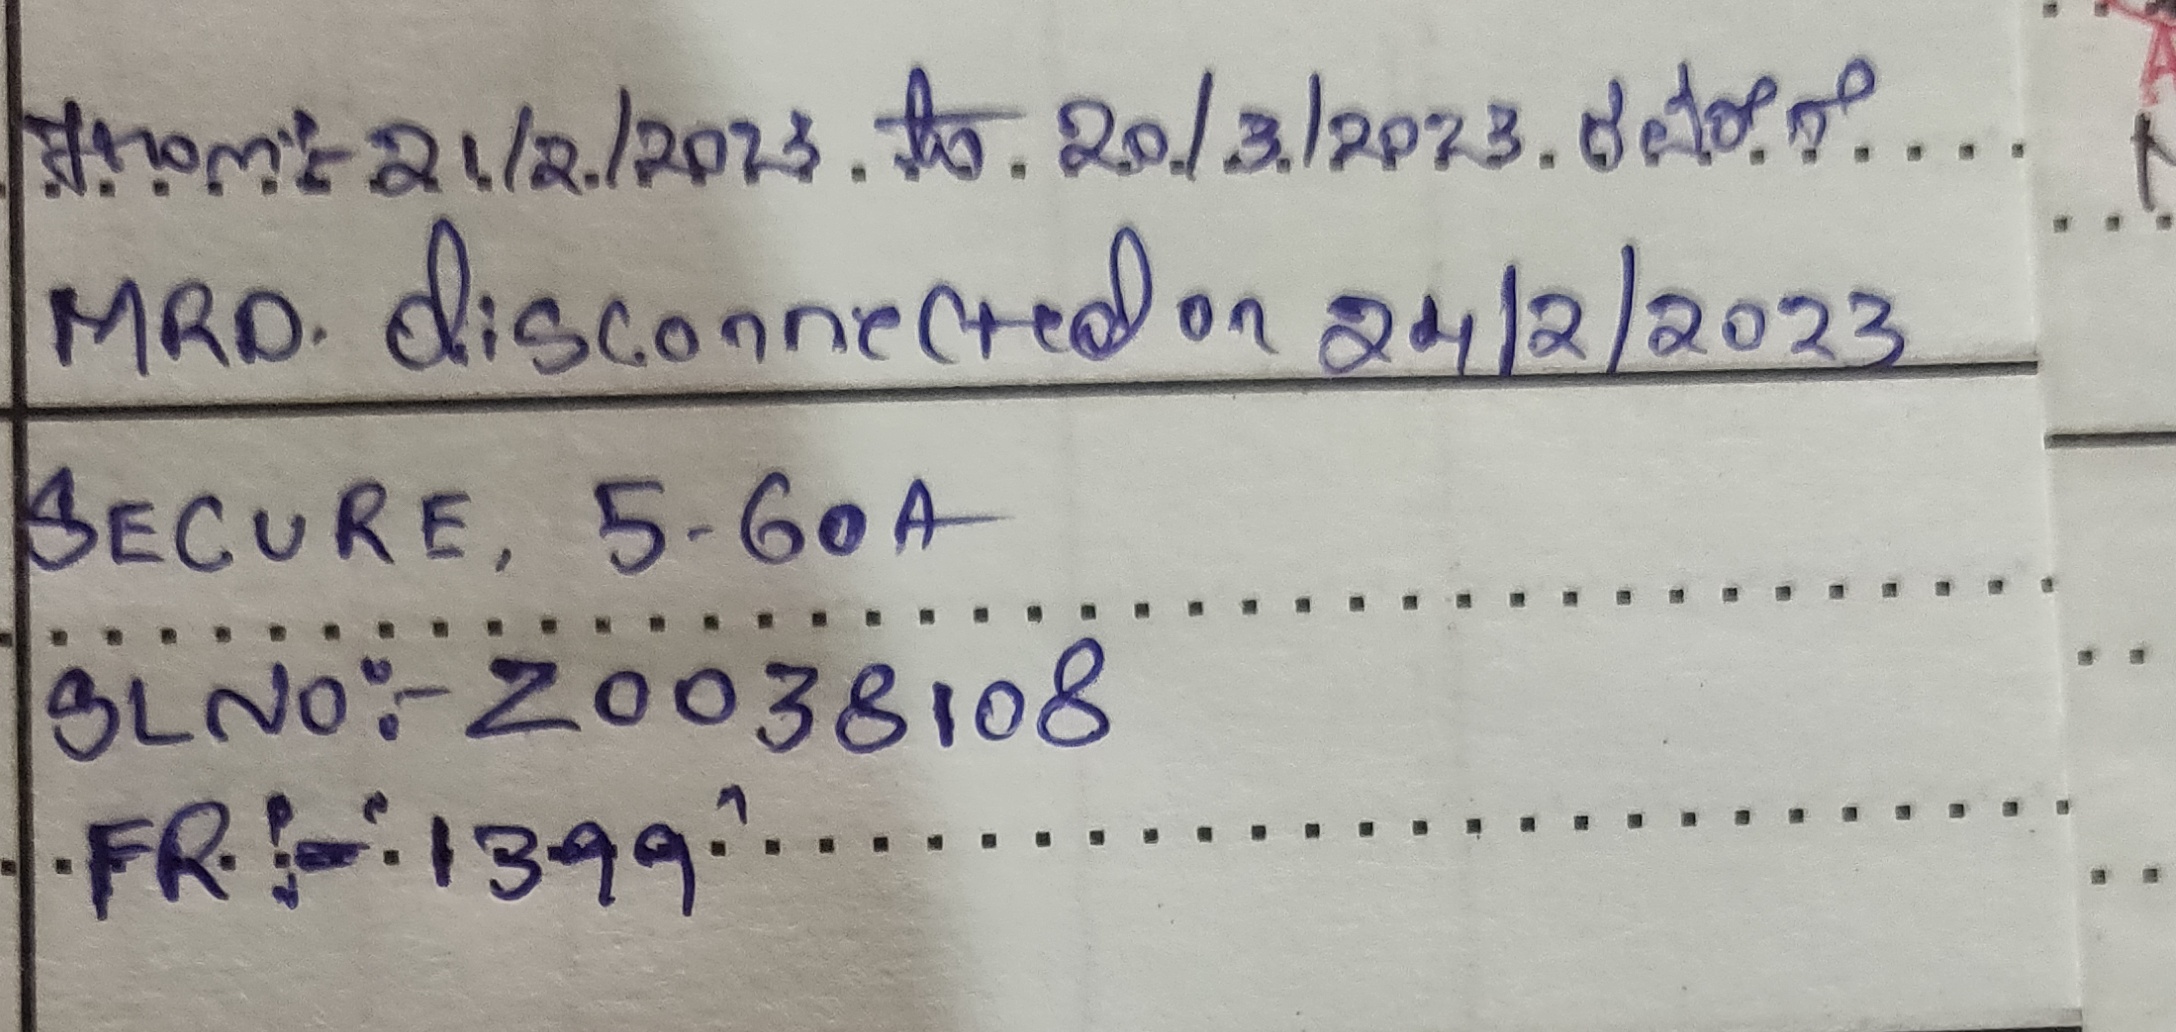 From:- 21/2/2023 to 20/3/2023 ರವರೆಗೆ
MRD. disconnected on 24/2/2023
SECURE, 5-60A
SLNO:- Z0038108
FR:- 1399